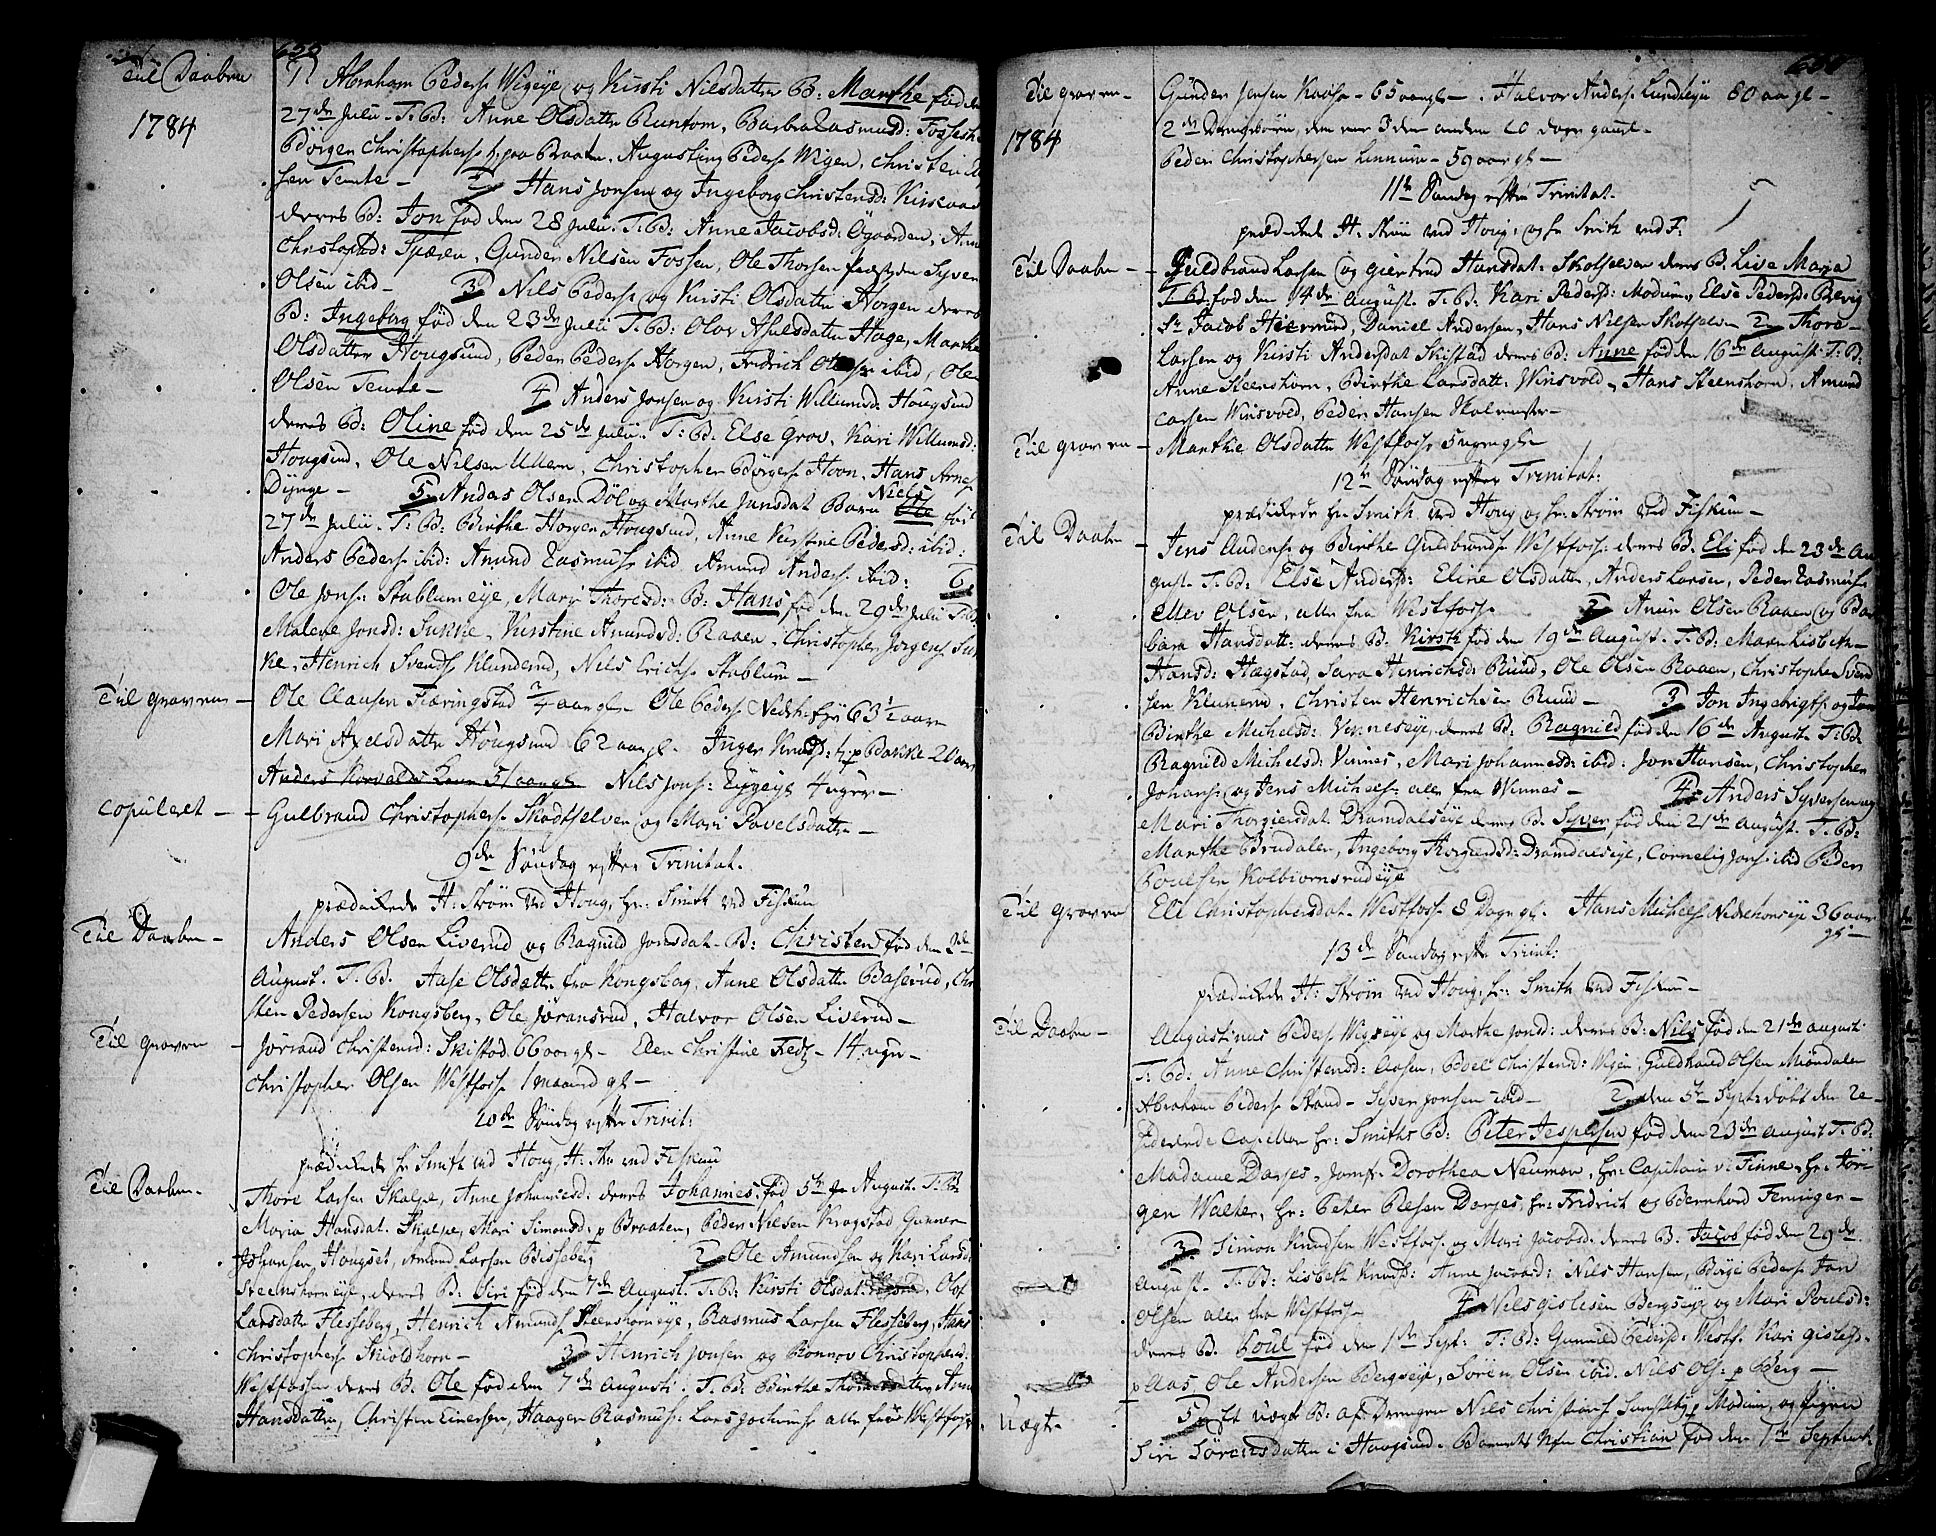 Til Daaben
1784
1. Abraham Peders: Wigeje og Kirsti Nilsdatter B: Marthe fød den
27de Julii. T. B: Anne Olsdatter Runtom, Barbra Rasmusd: Fossesh
Børgen Christophers: h: paa Braaten, Augustinus Peders: Wigen, Christen
sen Temte - 2 Hans Jonsen og Ingeborg Christensd:
deres B: Jon fød den 28 Julii. T. B: Anne Jacobsd: Øgaarden, Anne
Christophd: Spæren, Gunder Nilsen Fossen, Ole Thorsen Syver
Olsen ibid - 3 Nils Peders: og Kirsti Olsdatter Horgen deres
B: Ingeborg fød den 23de Julii T. B: Olov Axelsdatter Hage, Marthe
Olsdatter Hougsund, Peder Peders: Horgen, Fridrich Olsen ibid, Ole
Olsen Temte - 4 Anders Jonsen og Kirsti Willumsd: Hougsund
deres B: Oline fød den 25de Julii. T. B: Else Grov, Kari Willumsd:
Hougsund, Ole Nilsen Ullern, Christopher Børgers: Hoen, Hans Arnes:
Dynge - 5 Anders Olsen Døl og Marthe Jansdat Barn Niels fød
27de Julii. T. B: Birthe Horgen Hougsund, Anne Kirstine Pedersd: ibid:
Anders Peders: ibid: Amund Rasmus: ibid Amund Anders: ibid: 6
Ole Jons: Stablumeje, Mari Thoresd: B: Hans fød den 29de Julii T. B:
Malene Jonsd: Sukke, Kirstine Amundsd: Raaen, Christopher Jorgens: Suk
ke, Henrich Svends: Klunderud, Nils Erichs: Stablum -
Til Graven - Ole Clausen Fiæringstad 3/4 aar gl - Ole Peders: Nedsh: 63 1/2 aar
Mari Axelsdatter Hougsund 62 aar gl. Inger Knuds: h: p Bakke 20 aar
Anders 51 aar gl Nils Jons: 4 uger -
Copuleret - Gulbrand Christophers: Skodtselven og Mari Povelsdatter -
9de Søndag efter Trinitat.
prædikede H: Strøm ved Houg, Hr: Smith ved Fiskum
Til Daaben - Anders Olsen Liverud og Ragnild Jonsdat. B: Christen fød den 2de
August. T. B. Aase Olsdatter fra Kongsberg, Anne Olsdatter Baserud, Chr
sten Pedersen Kongsberg, Ole Jøransrud, Halvor Olsen Liverud -
Til Graven - Jørand Christensd: Skistad 66 aar gl - Elen Christine 14 uger -
Christopher Olsen Westfoss: 1 maaned gl -
10de Søndag efter Trinit:
prædikede Hr Smith ved Houg, H: Str: ved Fiskum
Til Daaben - Thore Larsen Skalpe, Anne Johannesd: deres Johannes fød 5te August. T. B:
Maria Hansdat. Skalpe, Mari Simonsd: p Braaten, Peder Nilsen Kragstad, Gunner
Johansen Hougset, Amund Larsen Besseberg 2 Ole Amundsen og Kari Larsd:
Steenshorneje, deres B: Siri fød den 7de August. T. B: Kirsti Olsdat. Olof
Larsdatter Flesseberg, Henrich Amunds: Steenshorneje, Rasmus Larsen Flesseberg, Hans
Christophers: Skioldhorn - 3 Henrich Jonsen og Ronnov Christophersd:
Westfossen deres B. Ole fød den 7de Augusti. T. B: Birthe Thomasdatter, Anne
Hansdatter, Christen Einersen, Haagen Rasmus: Lars Jochums: alle fra Westfoss:
Til Graven -
1784
Gunder Jensen Kaass - 65 aar gl - Halvor Anders: Lundteje 60 aar gl -
2de Drengebørn, den ene 3 den anden 20 dage gaml -
Peder Christophersen Linnum - 59 aar gl -
11te Søndag efter Trinitat.
prædikede H: Strøm ved Houg, og Hr Smith ved F:
Til Daaben - Guldbrand Larsen og Giertrud Hansdat: Skotselven deres B. Live Maria
T. B: fød den 14de August. T. B: Kari Pedersd: Modum, Else Pedersd: Bevig
Sr Jacob Hiermind, Daniel Andersen, Hans Nilsen Skotselv 2 Thore
Larsen og Kirsti Andersdat Skistad deres B: Anne fød den 16de August. T. B:
Anne Steenshorn, Birthe Larsdatt: Winsvold, Hans Steenshorn, Amund
Larsen Winsvold, Peder Hansen Skolemester -
Til Graven - Marthe Olsdatter Westfoss: 5 uger gl -
12te Søndag efter Trinitat:
prædikede Hr: Smith ved Houg og Hr: Strøm ved Fiskum -
Til Daaben - Jens Anders: og Birthe Guldbrands: Westfoss: deres B. Eli fød d 23de Au
gust. T. B: Else Andersd: Eline Olsdatter, Anders Larsen, Peder Rasmus:
Ellev Olsen, alle fra Westfoss: 2 Amun Olsen Raaen og Bar
bara Hansdatt: deres B. Kirsti fød den 19de August. T. B: Maren Lisbeth
Hansd: Hagstad, Sara Henrichsd: Ruud, Ole Olsen Raaen, Christopher Svend
sen Klunerud, Christen Henrichsen Ruud - 3 Jon Ingebrigts: og
Birthe Michelsd: Vinneseje, deres B: Ragnild fød den 16de August T. B:
Ragnild Michelsd: Vinnes, Mari Johannesd: ibid: Jon Hansen, Christopher
Johans: og Jens Michels: alle fra Vinnes - 4 Anders Syversen og
Mari Thorgiersdat. Dramdalseje deres B. Syver fød den 21de August. T. B:
Marthe Brudalen, Ingeborg Thorgiersd: Dramdalseje, Cornelis Jons: ibid Peder
Poulsen Kolbiornsrudeje
Til Graven Eli Christophersdat. Westfoss: 8 Dage gl. Hans Michels: Nedehonseje 36 aar
gl -
13de Søndag efter Trinit:
prædikede H: Strøm ved Houg, Hr: Smith ved Fiskum -
Til Daaben - Augustinus Peders: Wigseje og Marthe Jonsd: deres B: Nils fød den 21de Augusti
T. B: Anne Christensd: Aasen, Boel Christensd: Wigen, Guldbrand Olsen Miøndalen
Abraham Peders: Strand - Syver Jonsen ibid - 2 den 5te Sept: døbt den re
siderende Capellan Hr: Smiths B: Peter Jespersen fød den 23de August T. B:
Madame Darjes, Jomf: Dorothea Neuman, Hr: Capitain v: Finne, Hr: Jør
gen Walter, Hr: Peter Resen Darjes, Hr: Fridrich og Bernhard Feninger -
3 Simon Knudsen Westfoss: og Mari Jacobsd: deres B. Jacob fød den 29de
August. T. B: Lisbeth Knuds: Anne Jacobsd: Nils Hansen, Børge Peders: Jon
Olsen alle fra Westfoss - 4 Nils Gislesen Bergseje og Mari Poulsd:
deres B. Poul fød den 1ste Sept: T. B: Gunnild Pedersd: Westf: Kari Gislesd:
p Aas, Ole Andersen Bergseje, Søren Olsen ibid. Nils Ols: p Berg -
Uægte 5 Et Uægte B: af Drengen Nils Christians: p Modum, og Pigen
Siri Sørensdatter i Hougsund. Barnets Nafn Christian fød den 1ste Septemb: